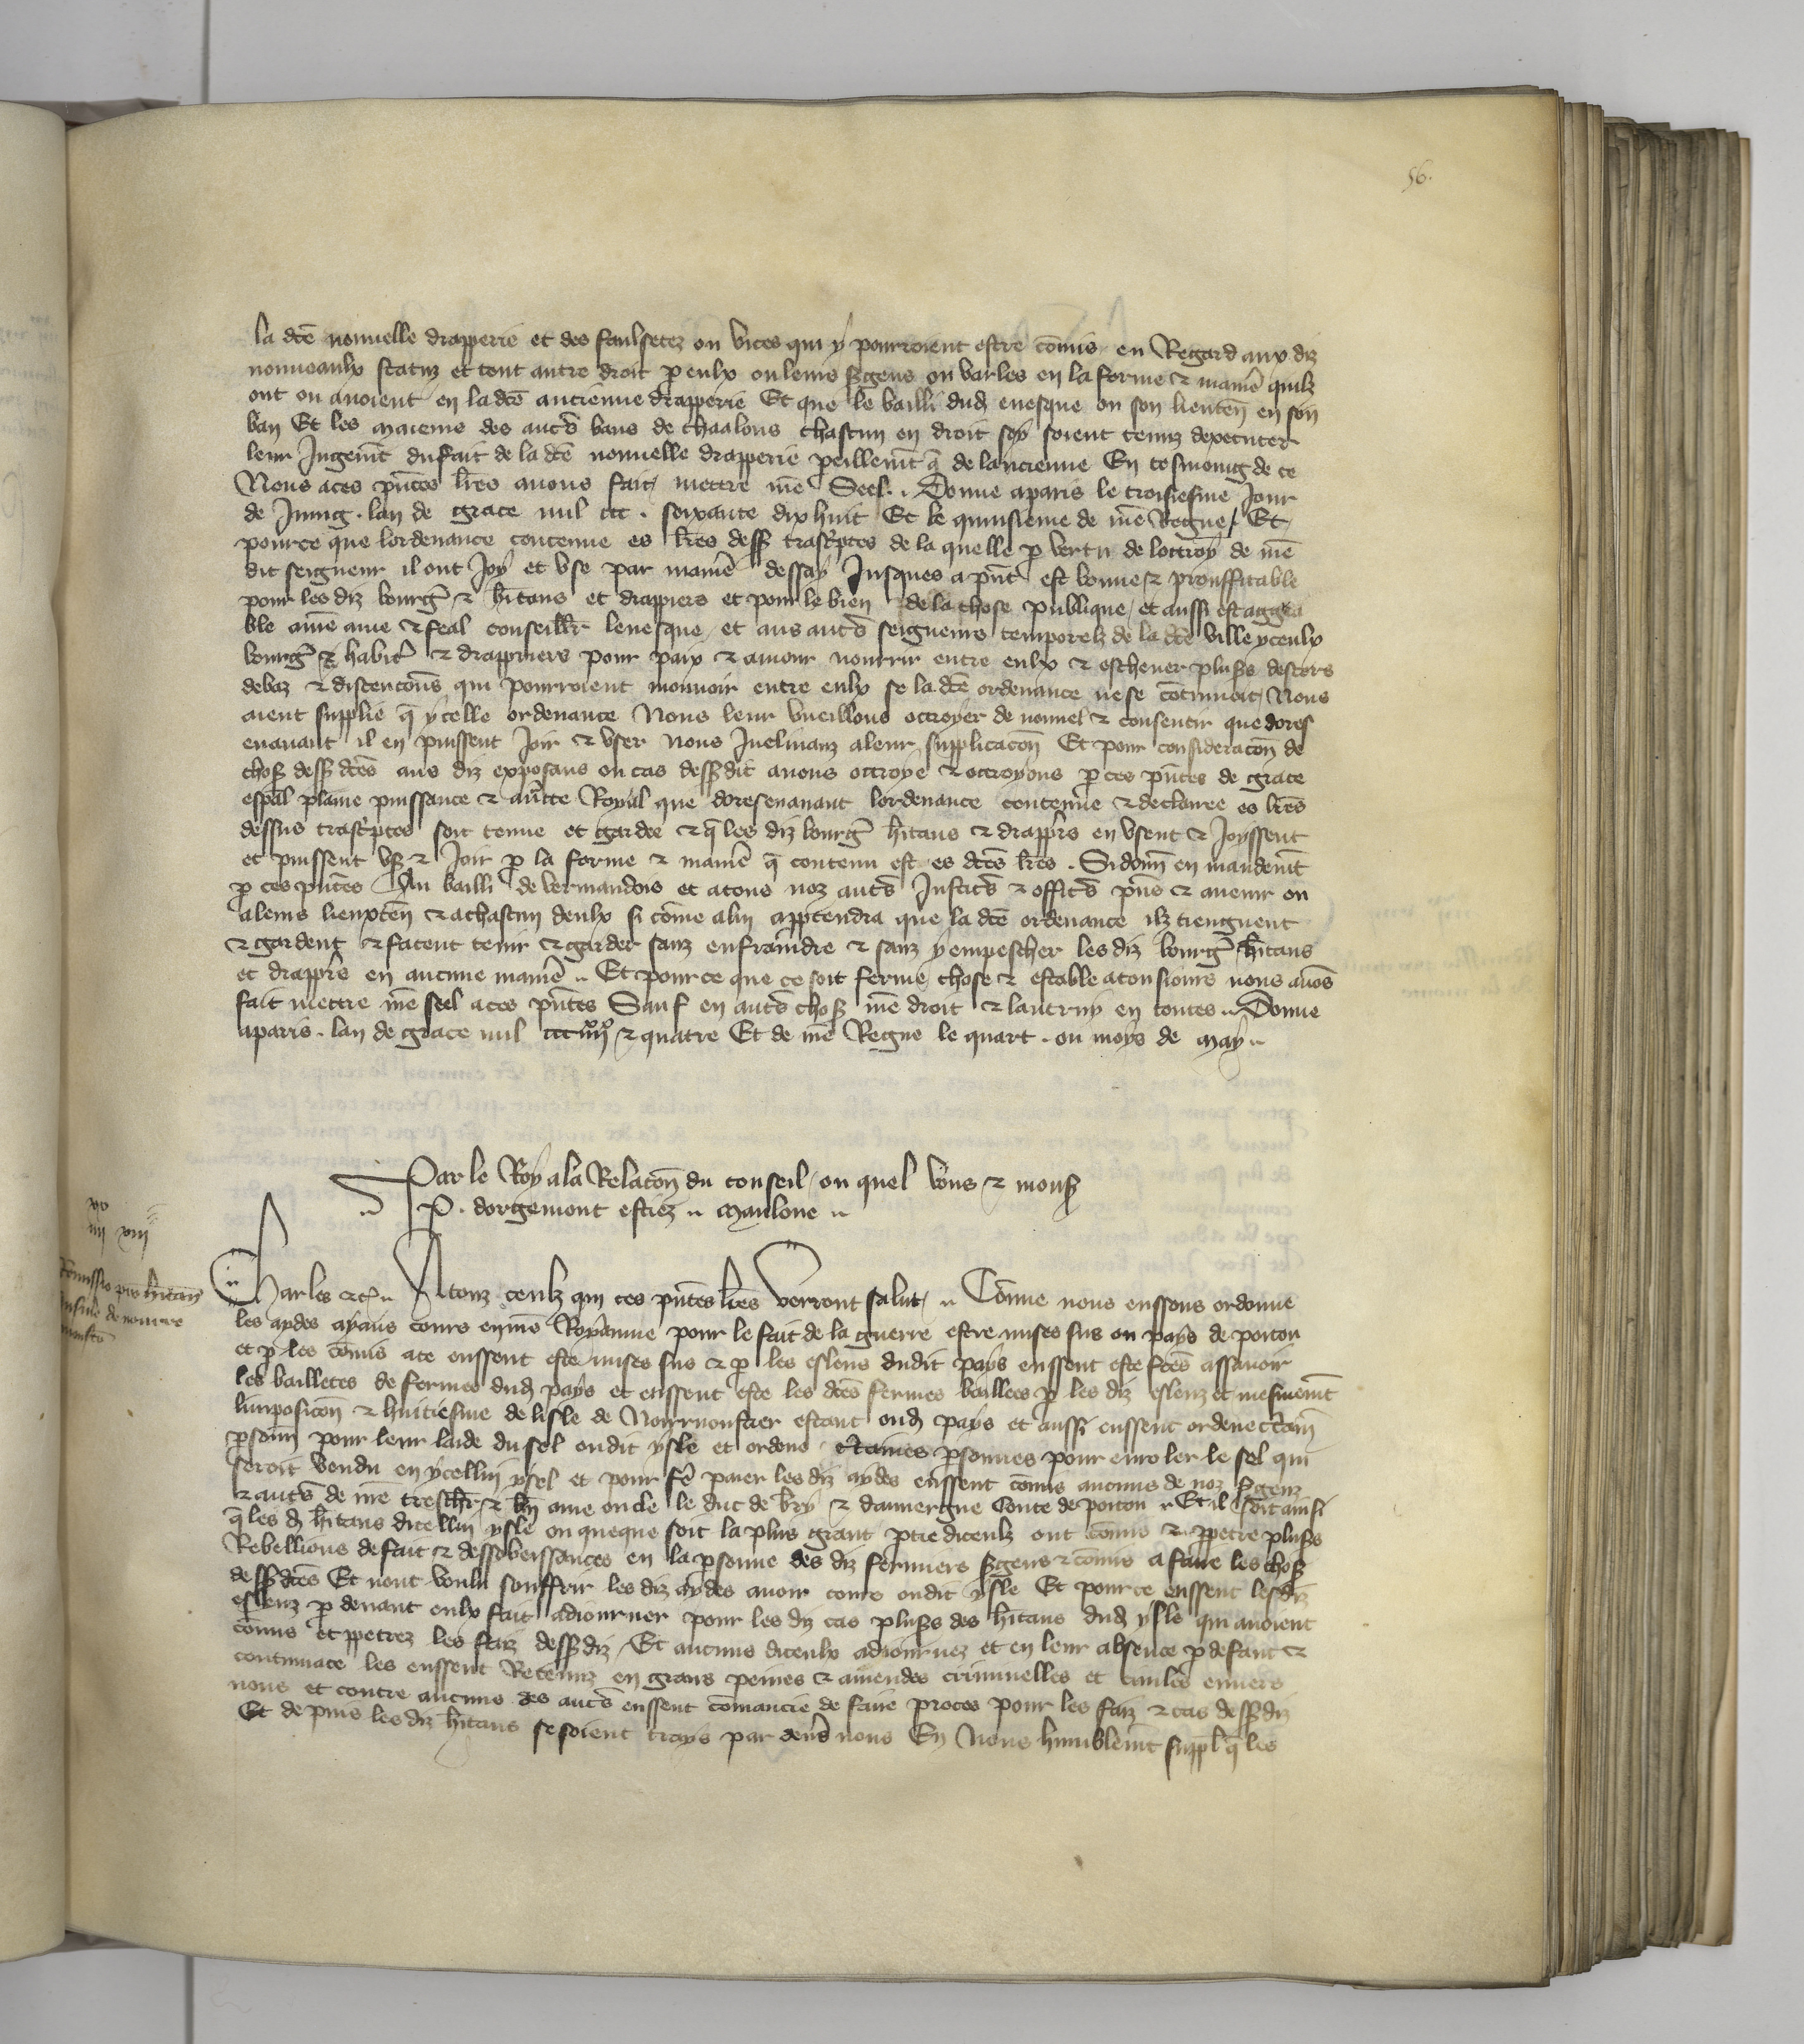 56.
la dce nouuelle drapperie et des faulsetez ou vices qui y pourroient estre comis en Regard aux diz
nouueaulx statuz et tout autre droit p eulx ou leurs sgens ou varles en la forme & manie quilz
ont ou auoient en la dce ancienne drapperie Et que le bailli dud euesque ou son lieuten en son
ban Et les maieurs des autrs bans de chaalons chascun en droit soy soient tenuz dexecuter
leur Jugemt du fait de la dce nouuelle drapperie peillemt q de lancienne En tesmoing de ce
Nous a ces pntes lres auons fait mettre nre Seel. Donne a paris le troisiesme Jour
de Juing. lan de grace mil ccc. soixante dix huit Et le quinsieme de nre Regne / Et
pource que lordenance contenue es lres dess trasciptes de la quelle p vertu de lottroy de nre
dit seigneur il ont Joy et vse par manie dessay Jusques a pnt est bonne & prouffitable
pour les diz bourg & hitans et drappiers et pour le bien de la chose publique / et aussi est aggrea
ble a nre ame & feal conseillr leuesque / et aus autrs seigneurs temporelz de la dce ville yceulx
bourg & habit & drappiuers pour paix & amour nourrir entre eulx & escheuer pluss descors
debaz & discencions qui pourroient mouuoir entre eulx se la dce ordenance ne se continuoit / Nous
aient supplie q ycelle ordenance Nous leur vueillons octroyer de nouuel & consentir que dores
enauant il en puissent Joir & vser Nous Inclinanz a leur supplicacon Et pour consideracon de
chos dess dces aus diz exposans ou cas dessdit auons octroye & octroyons p ces pntes de grace
espal plaine puissance & aucte Royal que doresenauant lordenance contenue & declairee es lres
dessus trasciptes soit tenue et gardee & q les diz bourg hitans & drapprs en vsent & Joyssent
et puissent vs & Joir p la forme & manie q contenu est es dces lres. Si donn en mandemt
p ces pntes Au bailli de vermandois et a tous noz autrs Justics & offics pns & auenir ou
a leurs lieuxten & a chascun deulx si come a lui apptendra que la dce ordenance ilz tiengnent
& gardent & facent tenir & garder sanz enfraindre & sanz y empescher les diz bourg hitans
et drapprs en aucune manie .. Et pource que ce soit ferme chose & estable a tousiours nous auos
fait mettre nre seel a ces pntes Sauf en autrs chos nre droit & lautruy en toutes .. Donne
a paris. lan de grace mil ccc iiii xx & quatre Et de nre Regne le quart. ou moys de may ..
Par le Roy a la Relacon du conseil / ou quel vous & mons
P. dorgemont estiez .. Maulone ..
xx
iiii xviii
Remissio pro hitan
insule de
Charles etc .. A touz ceulz qui ces pntes lres verront salut / .. Come nous eussons ordonne
les aydes ayans cours en nre Royaume pour le fait de la guerre estre mises sus ou pays de poitou
et p les comis a ce eussent este mises sus & p les esleus dudit pays eussent este fces assauoir
les bailletes de fermes dud pays et eussent este les dces fermes baillees p les diz esleuz et mesmemt
limposicon & huitiesme de lisle de Noirmoustier estant oud pays et aussi eussent ordene ctain
psonn pour leur laide du sel oudit ysle et ordene ctaines psonnes pour enroler le sel qui
seroit vendu en ycellui ysel et pour fe paier les diz aydes eussent comis aucuns de noz sgenz
& autrs de nre treschr & bn ame oncle le duc de bry & dauuergne Conte de poitou .. Et il soit ainsi
q les d hitans dicellui ysle ou queque soit la plus grant ptie diceulz ont comis & ppetre pluss
Rebellions de fait & dessobeissances en la psonne des diz fermiers sgens & comis a faire les chos
dessdces Et nont voulu souffrir les diz aydes auoir cours oudit ysle Et pour ce eussent lesdiz
esleuz p deuant eulx fait adiourner pour les diz cas pluss des hitans dud ysle qui auoient
comis et ppetrez les faiz dessdiz / Et aucuns diceulx adiournez et en leur absence p defaut &
contumace les eussent Retenuz en grans peines & amendes criminelles et ciuiles enuers
nous et contre aucuns des autrs eussent comancie de faire proces pour les faiz & cas dessdiz
Et de puis les diz hitans se soient trays par deuers nous En Nous humblemt suppl q les